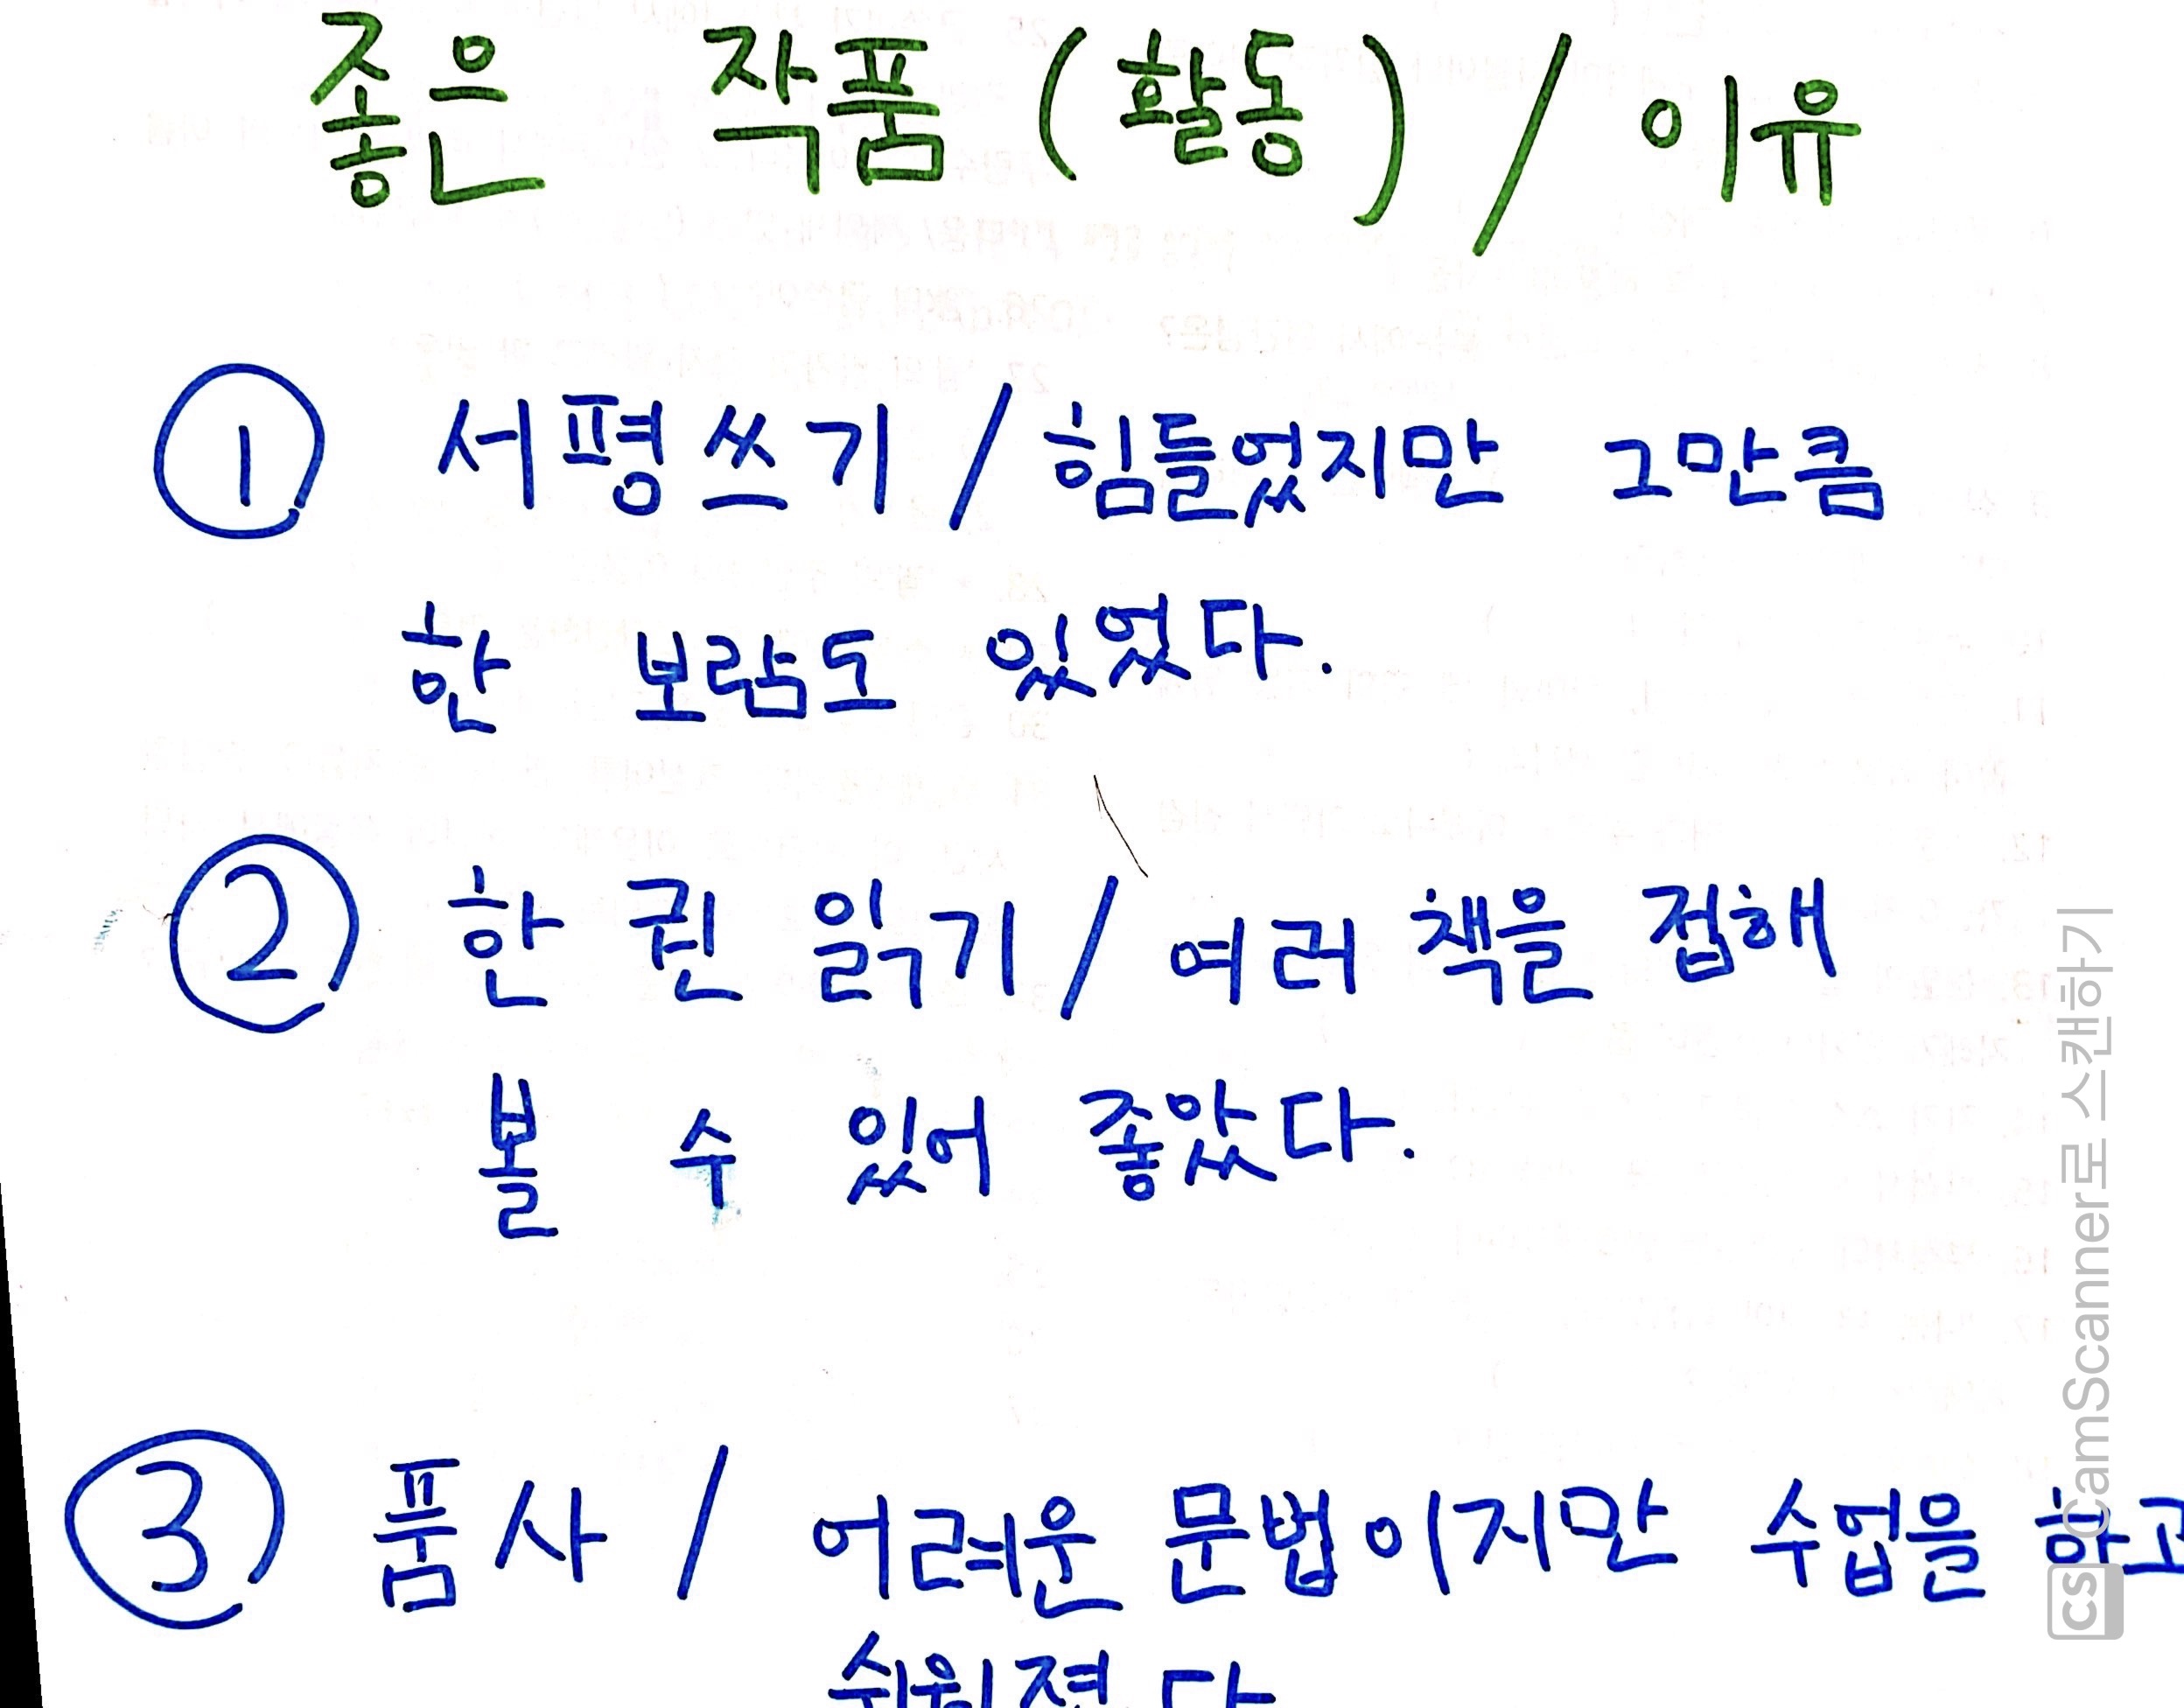 좋은 작품 (활동) / 이유
① 서평쓰기 / 힘들었지만 그만큼
한 보람도 있었다.
② 한 권 읽기 / 여러 책을 접해
볼 수 있어 좋았다.
③ 품사 / 어려운 문법이지만 수업을 하고
쉬워졌다
CS CamScanner로 스캔하기